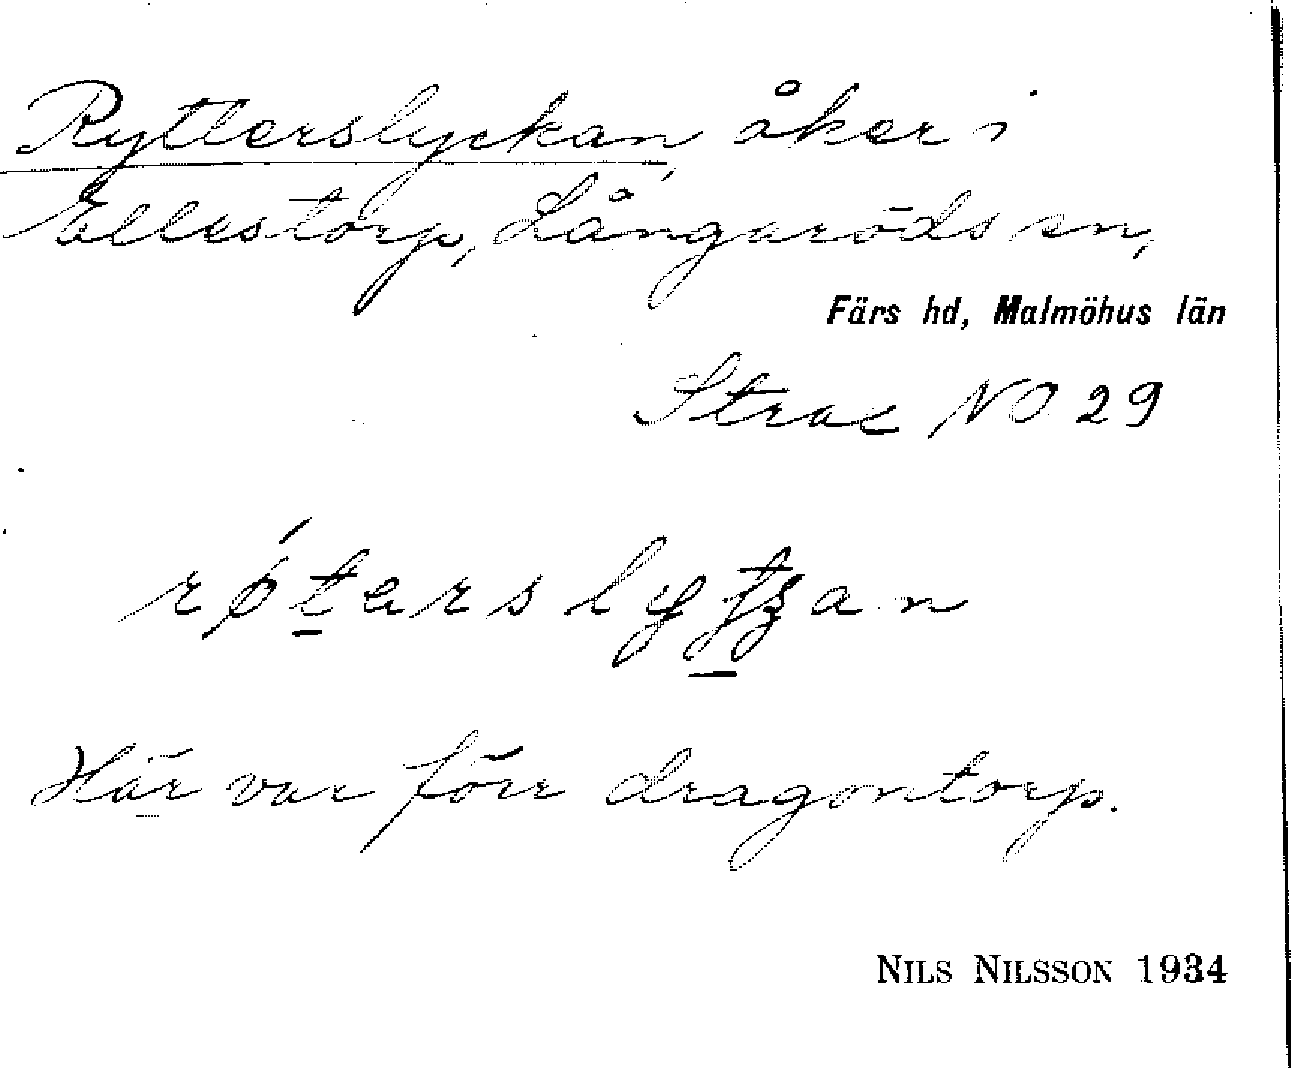 Rytterslyckan, åker i
Ellestorp, Långaröds sn,
Färs hd, Malmöhus län
Strax NO 29
Här var förr dragontorp.
NILS NILSSON 1934